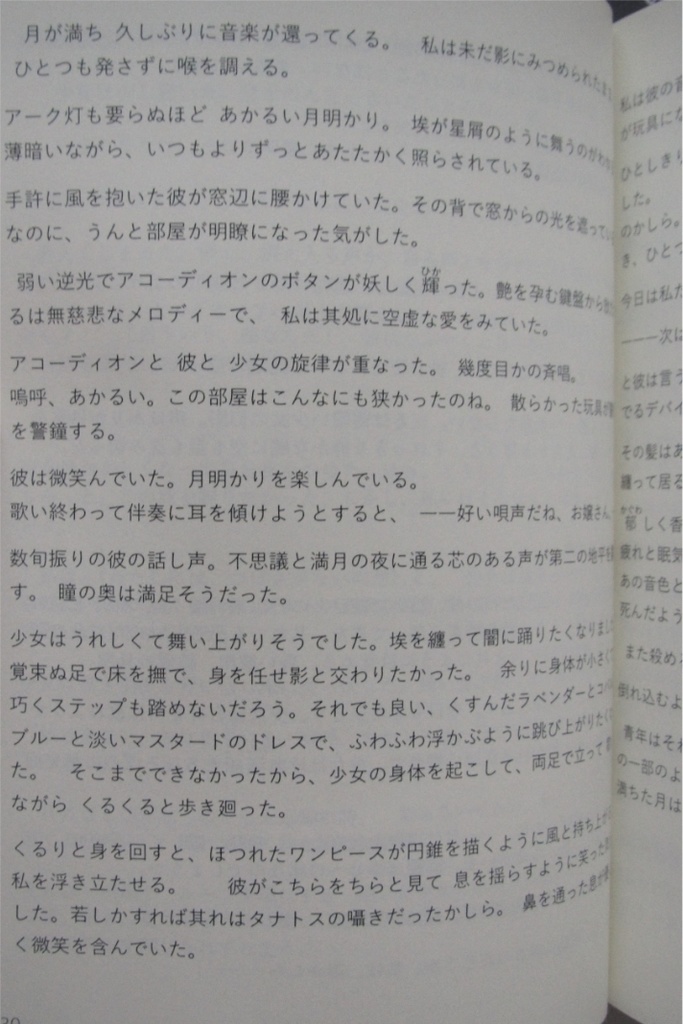 月が満ち 久しぶりに音楽が還ってくる。 私は未だ影にみつめられたま
ひとつも発さずに喉を調える。
アーク灯も要らぬほど あかるい月明かり。 埃が星屑のように舞うのが
薄暗いながら、いつもよりずっとあたたかく照らされている。
手許に風を抱いた彼が窓辺に腰かけていた。その背で窓からの光を遮ってい
なのに、うんと部屋が明瞭になった気がした。
弱い逆光でアコーディオンのボタンが妖しく輝った。艶を孕む鍵盤から
るは無慈悲なメロディーで、 私は其処に空虚な愛をみていた。
アコーディオンと 彼と 少女の旋律が重なった。 幾度目かの斉唱。
嗚呼、あかるい。この部屋はこんなにも狭かったのね。 散らかった玩具が
を警鐘する。
彼は微笑んでいた。月明かりを楽しんでいる。
歌い終わって伴奏に耳を傾けようとすると、 ――好い唄声だね、お嬢さん
数旬振りの彼の話し声。不思議と満月の夜に通る芯のある声が第二の地平
す。 瞳の奥は満足そうだった。
少女はうれしくて舞い上がりそうでした。埃を纏って闇に踊りたくなりまし
覚束ぬ足で床を撫で、身を任せ影と交わりたかった。 余りに身体が小さく
巧くステップも踏めないだろう。それでも良い、くすんだラベンダーとコバ
ブルーと淡いマスタードのドレスで、ふわふわ浮かぶように跳び上がりたく
た。 そこまでできなかったから、少女の身体を起こして、両足で立って
ながら くるくると歩き廻った。
くるりと身を回すと、ほつれたワンピースが円錐を描くように風と持ち上
私を浮き立たせる。 彼がこちらをちらと見て 息を揺らすように笑った
した。若しかすれば其れはタナトスの囁きだったかしら。 鼻を通った息が
く微笑を含んでいた。
30
私は彼の音
が玩具にな
ひとしきり
した。
のかしら。
き、ひとつ
今日は私た
―――次は
と彼は言う
でるデバイ
その髪はあ
纏って居る
郁しく香
疲れと眠気
あの音色と
死んだよう
また殺め
倒れ込むよ
青年はそれ
の一部のよ
満ちた月は